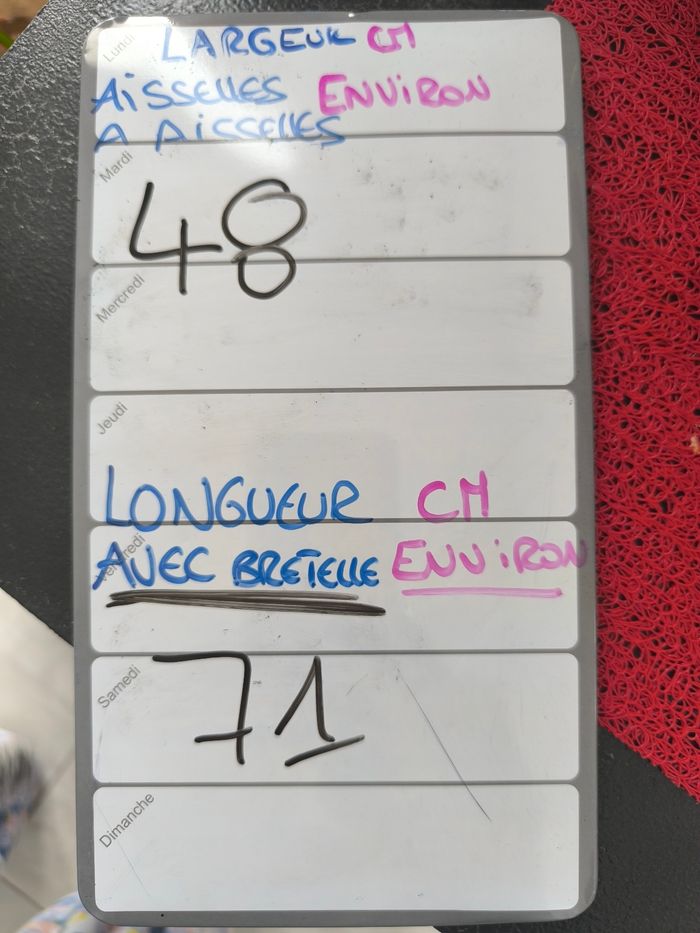 Lundi
LARGEUR CM
AiSSELLES ENViRON
A AiSSELLES
Mardi
48
Mercredi
Jeudi
LONGUEUR CM
Vendredi
AVEC BRETELLE ENViRON
Samedi
71
Dimanche